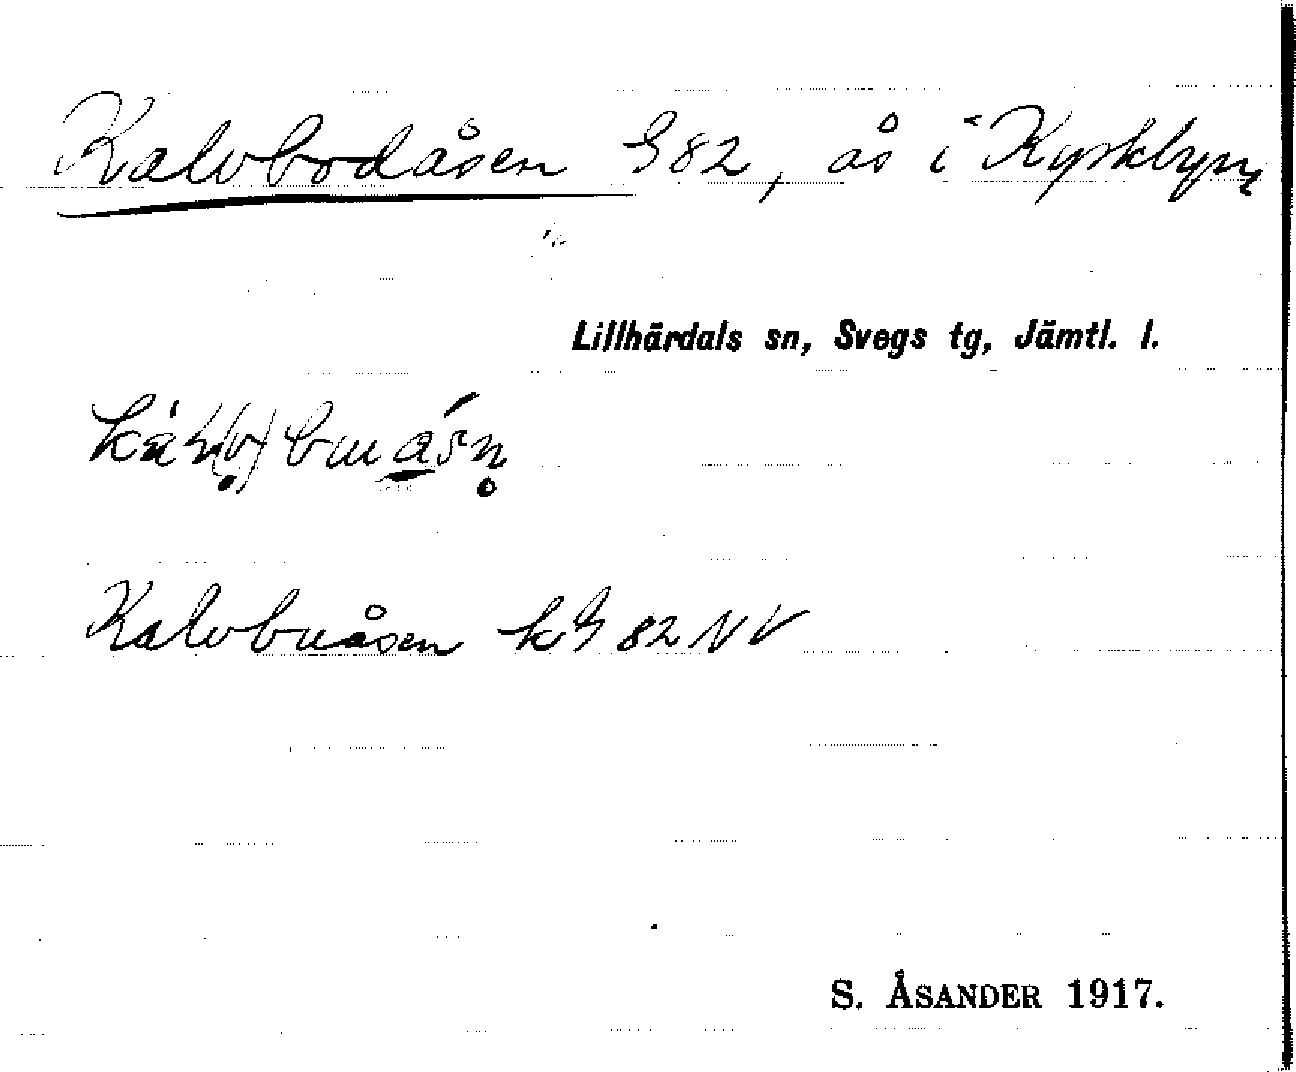 Kalvbodåsen G82, ås i Kyrkbyn,
Lillhärdals sn, Svegs tg, Jämtl. l.
Kalvbuåsen kG 82 NV
S. ÅSANDER 1917.